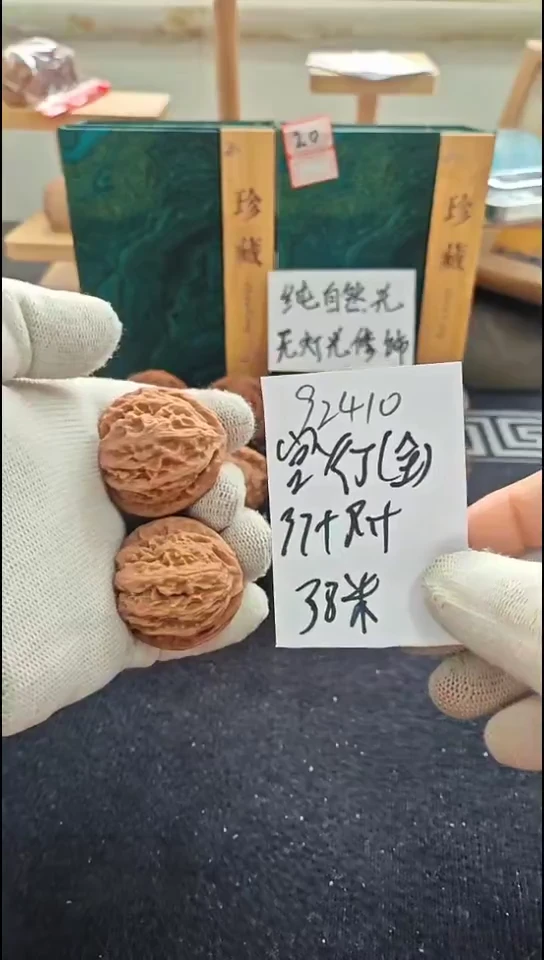 20
珍藏
珍藏
纯自然光
无灯光修饰
92410
37+尺寸
38米